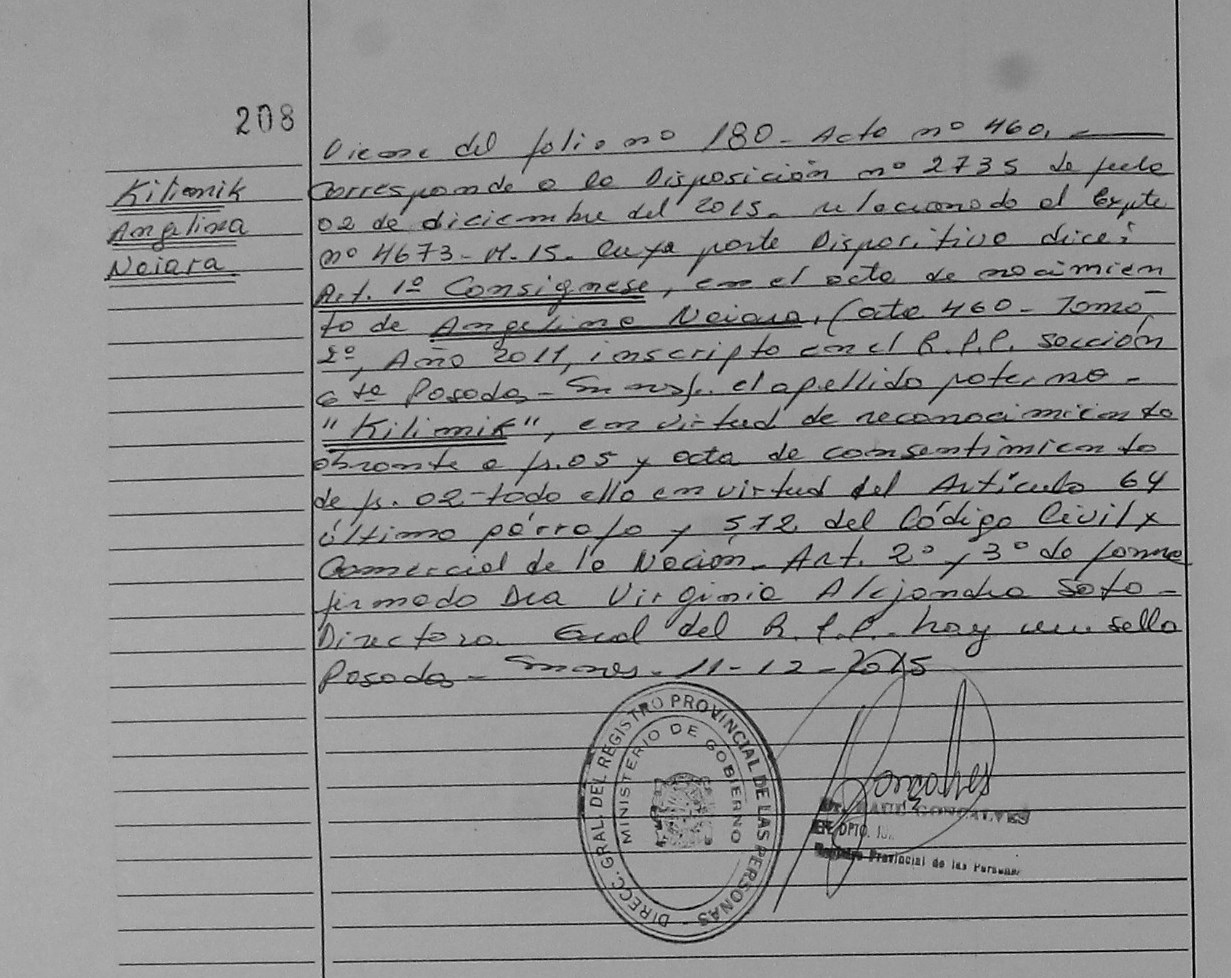 208
Viene del folio nº 180 - Acta nº 460. -
Kilimik
Angelina
Naiara
Corresponde a la Disposición nº 2735 de fecha
02 de diciembre del 2015. relacionado al Expte
nº 4673-M-15. cuya parte Dispositiva dice:
Art. 1º Consígnese, en el acta de nacimien
to de Angelina Naiara, (acta 460 - Tomo
2º, Año 2011, inscripta en el R.P.P. sección
6ta Posadas - Mnes). el apellido paterno -
"Kilimik", en virtud de reconocimiento
obrante a fs. 05 y acta de consentimiento
de fs. 02 - todo ello en virtud del Artículo 64
último párrafo y 572 del Código Civil y
Comercial de la Nación - Art. 2º y 3º de forma
firmado Dra Virginia Alejandra Soto -
Directora Gral del R.P.P. hay un sello
Posadas - Mnes - 11-12-2015
DIRECC. GRAL. DEL REGISTRO PROVINCIAL DE LAS PERSONAS -
MINISTERIO DE GOBIERNO
Dr. RAUL GONCALVES
DPTO.
Registro Provincial de las Personas